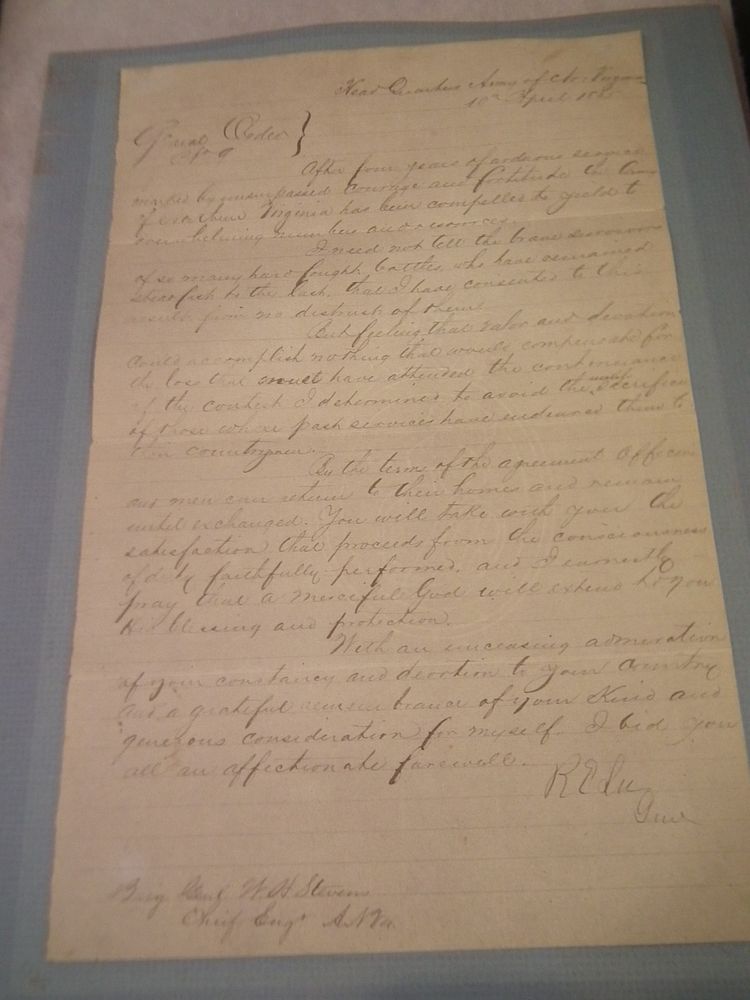 Head Quarters Army of No: Virginia
10th April 1865
General Orders }
No 9
After four years of arduous service
marked by unsurpassed courage and fortitude the Army
of Northern Virginia has been compelled to yield to
overwhelming numbers and resources.
I need not tell the brave survivors
of so many hard fought battles, who have remained
steadfast to the last, that I have consented to this
result from no distrust of them.
But feeling that valor and devotion
could accomplish nothing that would compensate for
the loss that must have attended the continuance
of the contest I determined to avoid the useless sacrifice
of those whose past services have endeared them to
their countrymen.
By the terms of the agreement Officers
and men can return to their homes and remain
until exchanged. You will take with you the
satisfaction that proceeds from the consciousness
of duty faithfully performed, and I earnestly
pray that a Merciful God will extend to you
His blessing and protection.
With an unceasing admiration
of your constancy and devotion to your Country
and a grateful remembrance of your Kind and
generous consideration for myself. I bid you
all an affectionate farewell.
R E Lee
Genl
Brig Genl W. H Stevens
Chief Engr A N Va.